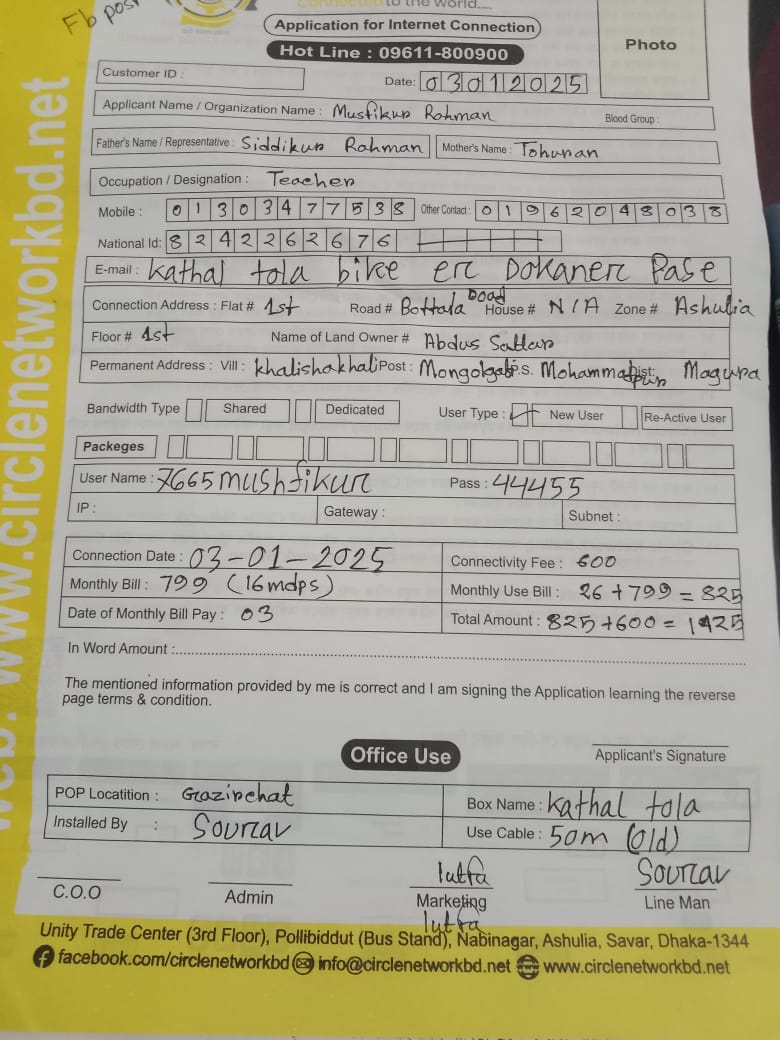 Fb post
Connected to the world.....
Application for Internet Connection
Hot Line : 09611-800900
Photo
Customer ID :
Date: 03012025
Applicant Name / Organization Name : Musfikur Rahman Blood Group :
Father's Name / Representative : Siddikur Rahman Mother's Name : Tohuran
Occupation / Designation : Teacher
Mobile : 01303477538 Other Contact : 01962048038
National Id: 8242262676
E-mail : Kathal tola bike er Dokaner Pase
Connection Address : Flat # 1st Road # Bottala Road House # N/A Zone # Ashulia
Floor # 1st Name of Land Owner # Abdus Sattar
Permanent Address : Vill : Khalishakhali Post : P.S. Mohammadpur Dist: Magura
Bandwidth Type Shared Dedicated User Type : New User Re-Active User
Packeges
User Name : 7665mushfikur Pass : 44455
IP : Gateway : Subnet :
Connection Date : 03-01-2025 Connectivity Fee : 600
Monthly Bill : 799 (16mdps) Monthly Use Bill : 26+799=825
Date of Monthly Bill Pay : 03 Total Amount : 825+600=1425
In Word Amount :
The mentioned information provided by me is correct and I am signing the Application learning the reverse
page terms & condition.
Applicant's Signature
Office Use
POP Locatition : Gazirchat Box Name : Kathal tola
Installed By : Sourav Use Cable : 50m (old)
lutfa Sourav
C.O.O Admin Marketing Line Man
lutfa
Unity Trade Center (3rd Floor), Pollibiddut (Bus Stand), Nabinagar, Ashulia, Savar, Dhaka-1344
facebook.com/circlenetworkbd info@circlenetworkbd.net www.circlenetworkbd.net
web: www.circlenetworkbd.net